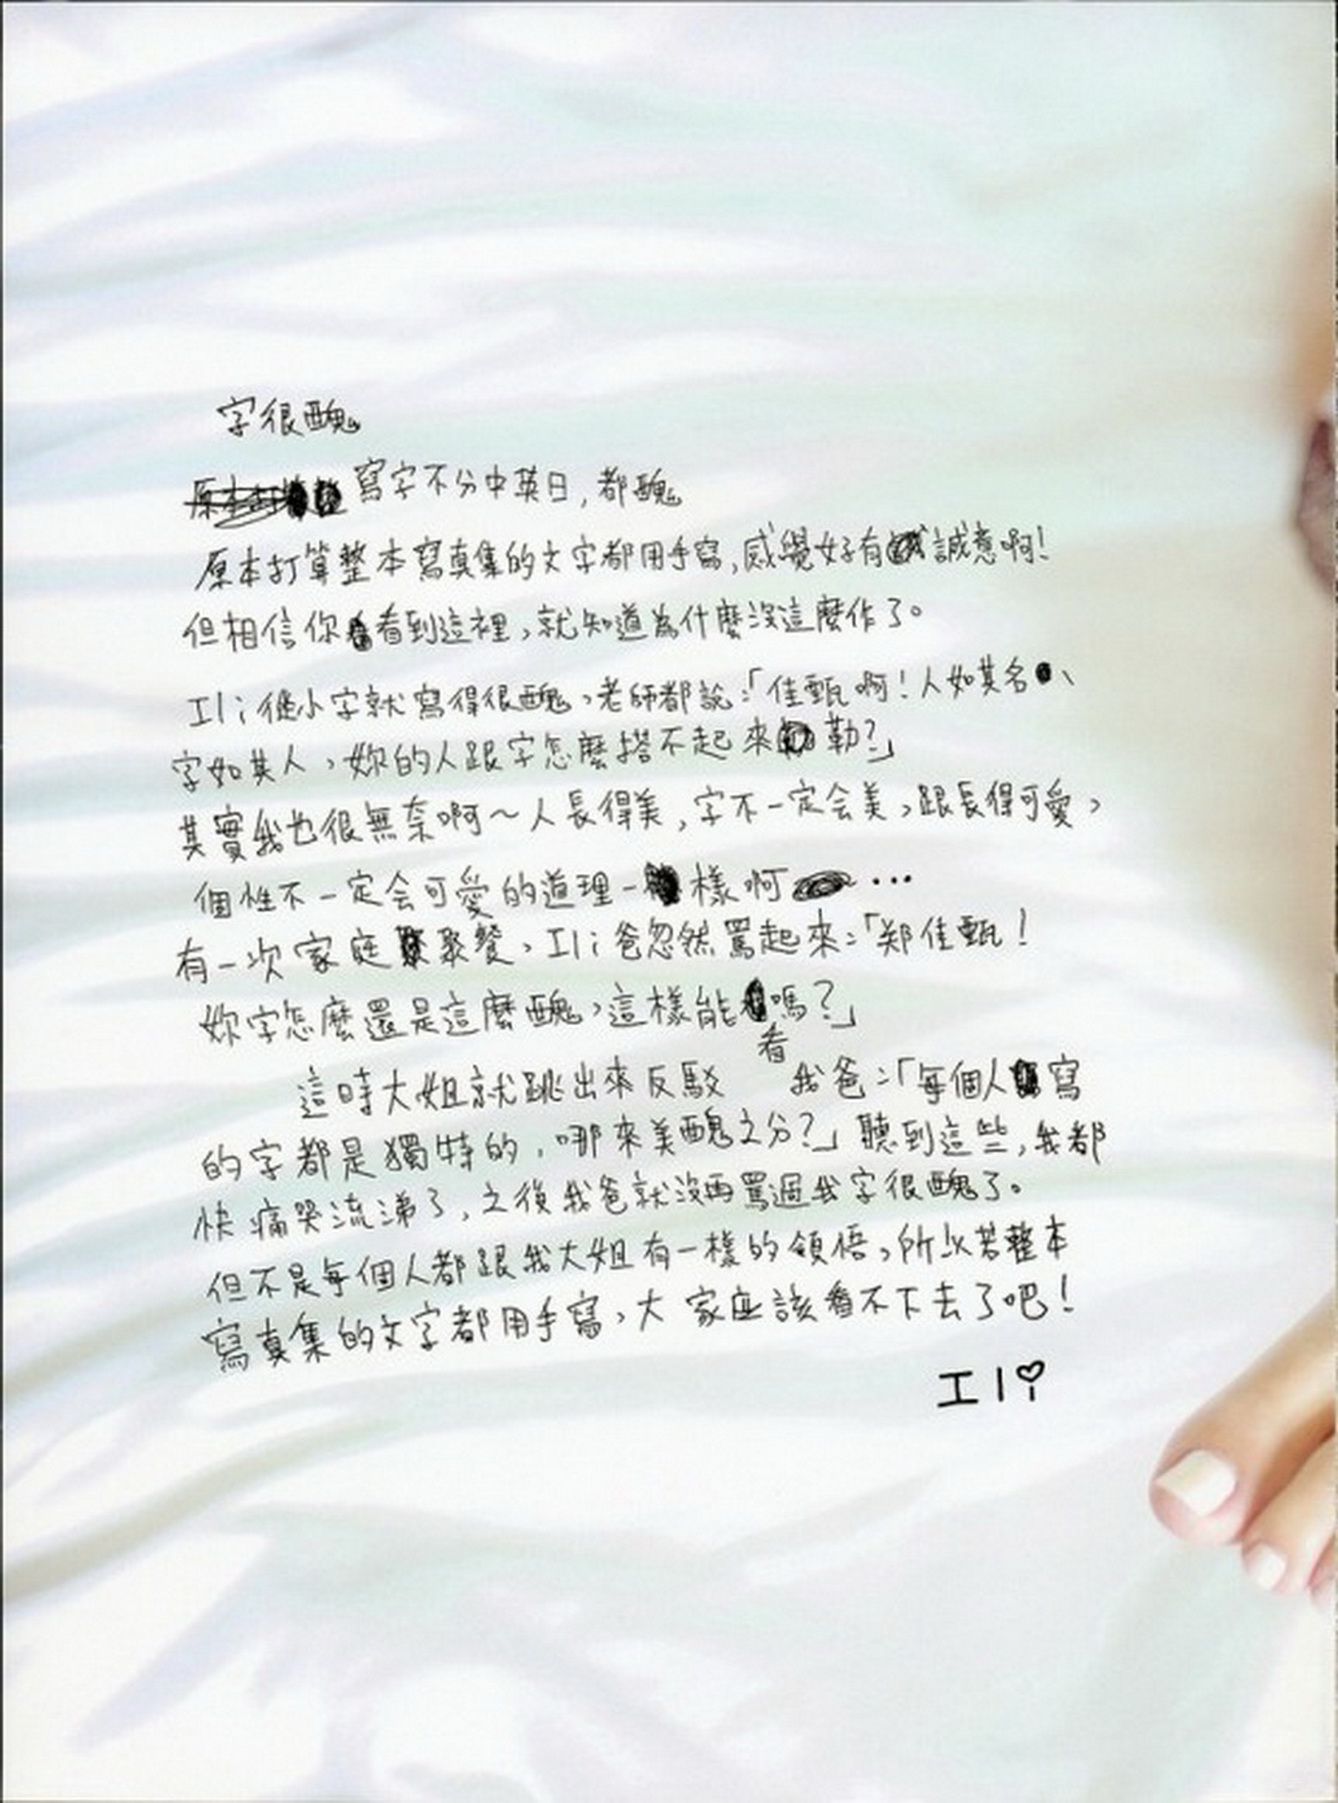 字很醜
寫字不分中英日,都醜
原本打算整本寫真集的文字都用手寫,感覺好有誠意啊!
但相信你看到這裡,就知道為什麼沒這麼作了。
Ili從小字就寫得很醜,老師都說:「佳甄啊!人如其名、
字如其人,妳的人跟字怎麼搭不起來勒?」
其實我也很無奈啊~人長得美,字不一定会美,跟長得可愛,
個性不一定会可愛的道理一樣啊...
有一次家庭聚餐,Ili爸忽然罵起來:「郑佳甄!
妳字怎麼還是這麼醜,這樣能看嗎?」
這時大姐就跳出來反駁我爸:「每個人寫
的字都是獨特的,哪來美醜之分?」聽到這些,我都
快痛哭流涕了,之後我爸就沒再罵過我字很醜了。
但不是每個人都跟我大姐有一樣的領悟,所以若整本
寫真集的文字都用手寫,大家应該看不下去了吧!
Ili